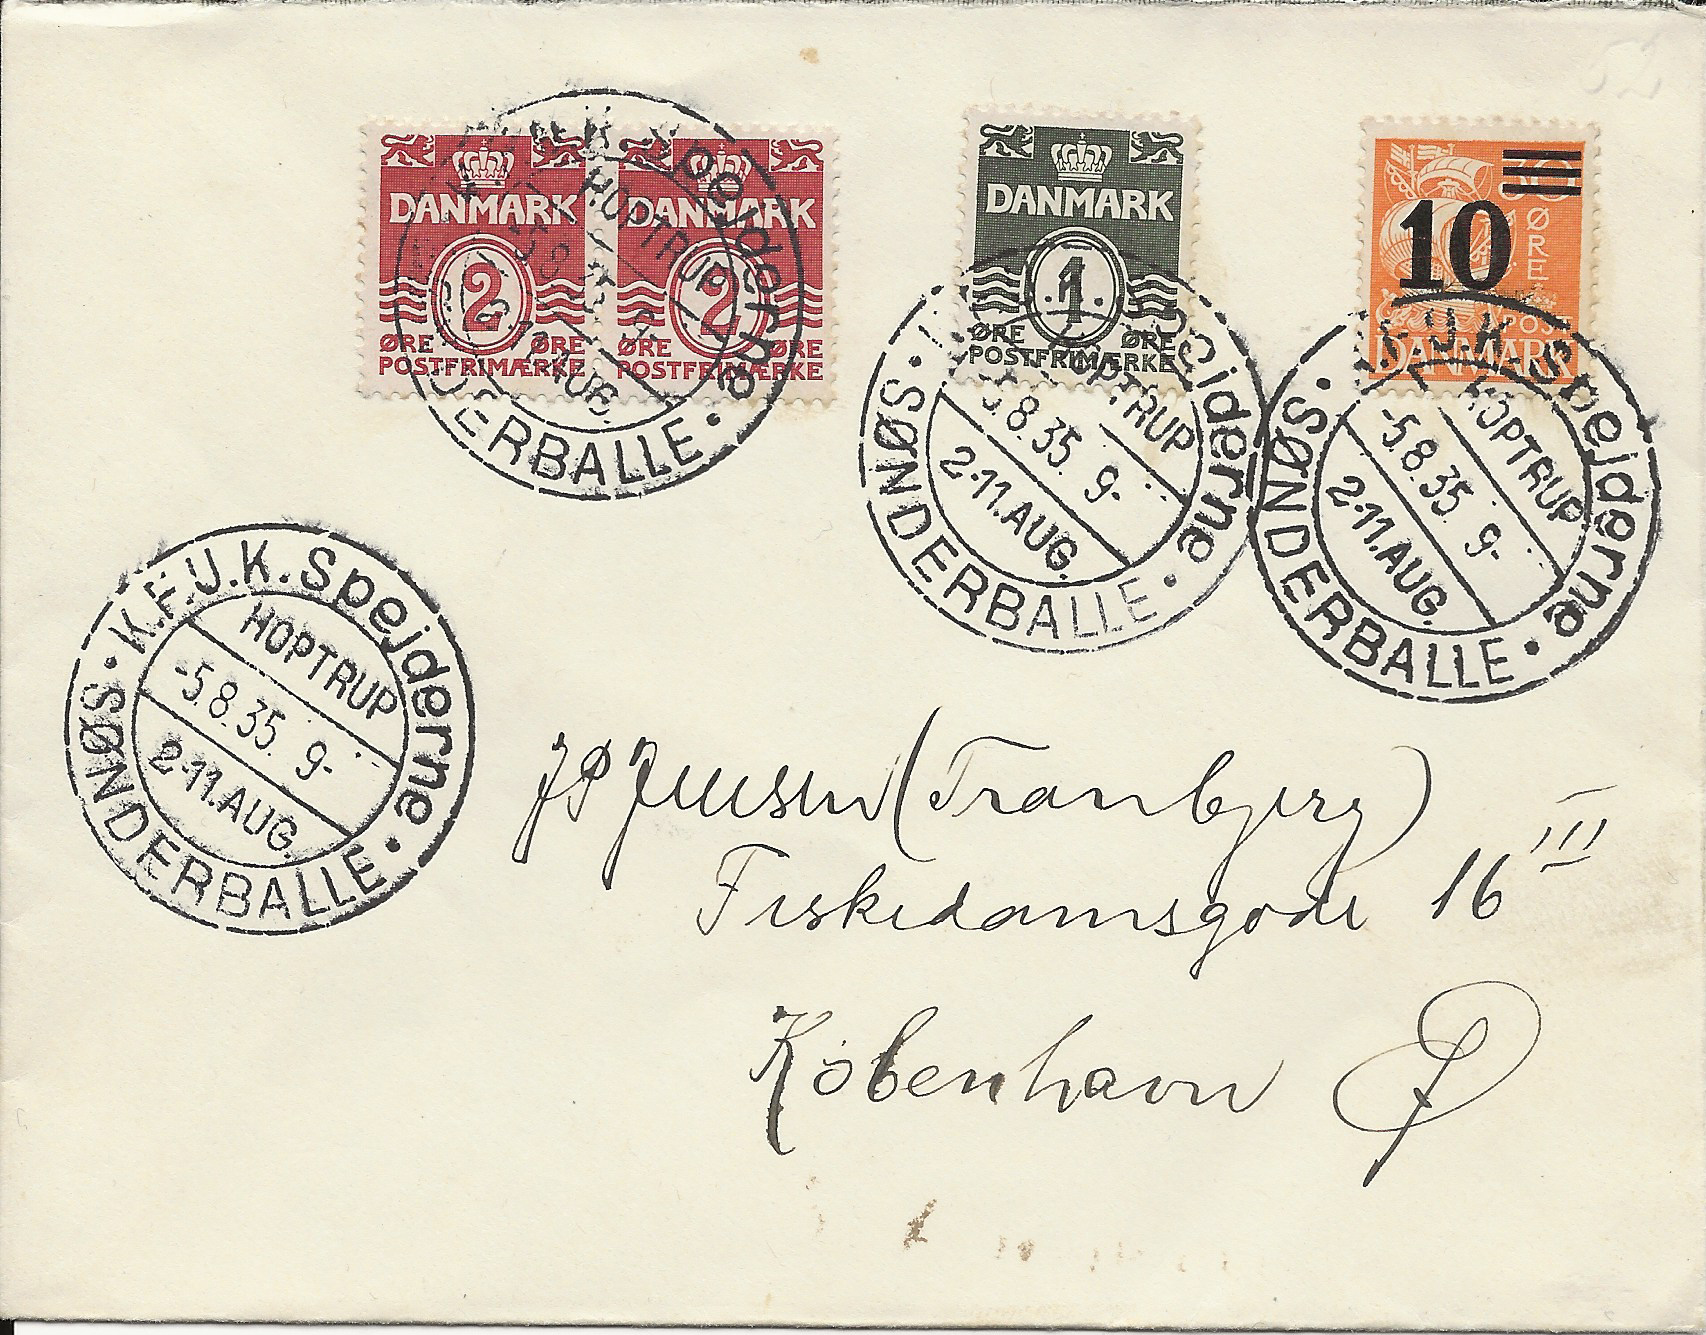 DANMARK
2
ØRE ØRE
POSTFRIMÆRKE
DANMARK
2
ØRE ØRE
POSTFRIMÆRKE
Spejderne
HOPTRUP
AUG.
DERBALLE
DANMARK
1
ØRE ØRE
POSTFRIMÆRKE
Spejderne
HOPTRUP
5.8.35. 9-
2-11.AUG.
SØNDERBALLE
30
10
ØRE
POST
DANMARK
K.F.U.K. Spejderne
HOPTRUP
-5.8.35. 9-
2-11.AUG.
SØNDERBALLE
K.F.U.K. Spejderne
HOPTRUP
-5.8.35. 9-
2-11.AUG.
SØNDERBALLE
JP Jensen (Tranbjerg)
Fiskedamsgade 16 III
København Ø